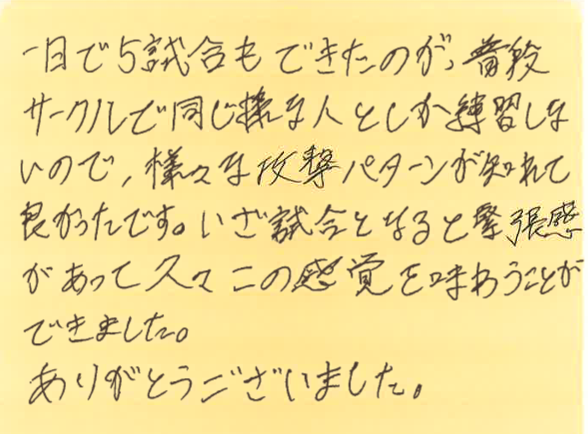 一日で5試合もできたのが、普段
サークルで同じ様な人としか練習しな
いので、様々な攻撃パターンが知れて
良かったです。いざ試合となると緊張感
があって久々この感覚を味わうことが
できました。
ありがとうございました。